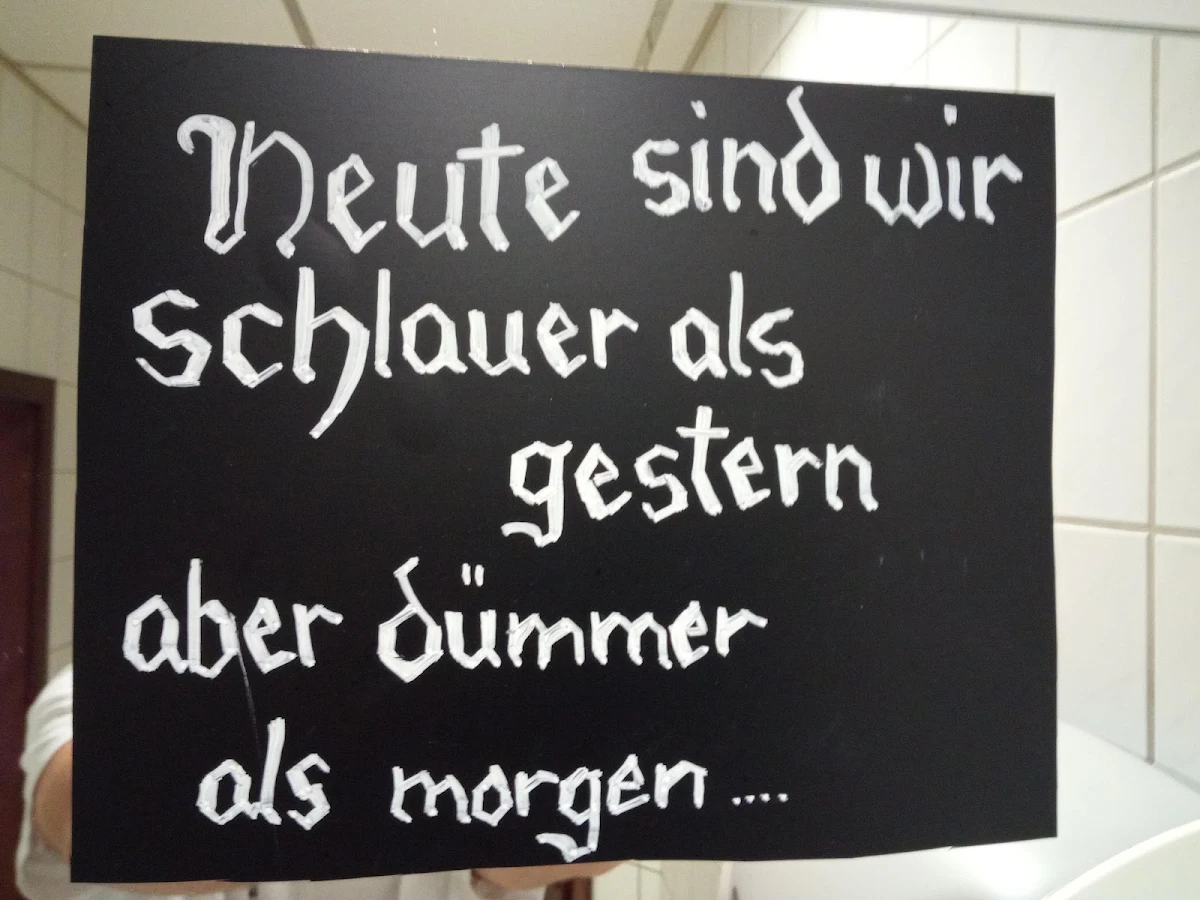 Heute sind wir
schlauer als
gestern
aber dümmer
als morgen ....